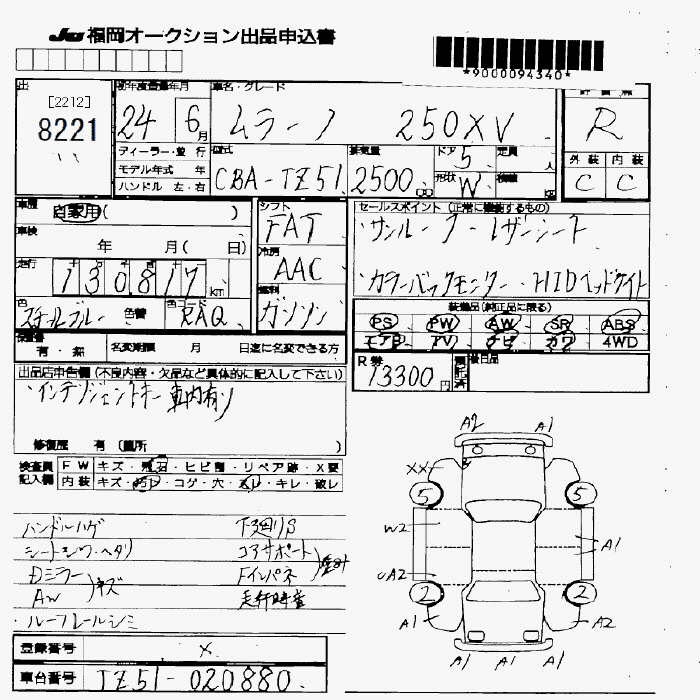 JU 福岡オークション出品申込書
*9000094340*
出 [2212] 8221
初年度登録年月 24 6月
車名・グレード ムラーノ 250XV
評価点 R
外装 C 内装 C
ディーラー・並行
モデル年式 年
ハンドル 左・右
型式 CBA-TZ51
排気量 2500 cc
ドア 5 形状 W
定員 人
積載
車歴 自家用( )
車検 年 月( 日)
走行 130817 km
色 スチールブルー 色替 色コード RAQ
シフト FAT
冷房 AAC
燃料 ガソリン
セールスポイント (正常に機能するもの)
サンルーフ・レザーシート
カラーバックモニター・HIDヘッドライト
装備品(純正品に限る)
PS PW AW SR ABS
エアB TV ナビ カワ 4WD
保証書 有・無 名変期限 月 日迄に名変できる方
R券 13300円
後日品
出品店申告欄(不良内容・欠品など具体的に記入して下さい)
・インテリジェントキー 車内有り
修復歴 有(箇所 )
検査員 FW キズ・飛石・ヒビ割・リペア跡・X要
記入欄 内装 キズ・汚レ・コゲ・穴・スレ・キレ・破レ
ハンドルハゲ 下廻りS
シートシワ・ヘタリ コアサポート
Dミラー Fインパネ
AW キズ
・ルーフレールシミ
A2 A1
XX
5 5
W2 A1
UA2
2 2
A1 A2
A1 A1
登録番号 ×
車台番号 TZ51-020880